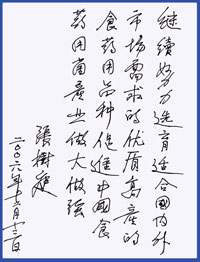 继续努力选育适合国内外
市场需求的优质高产的
食药用品种促进中国食
药用菌产业做大做强
張樹庭
二〇〇六年十二月十二日